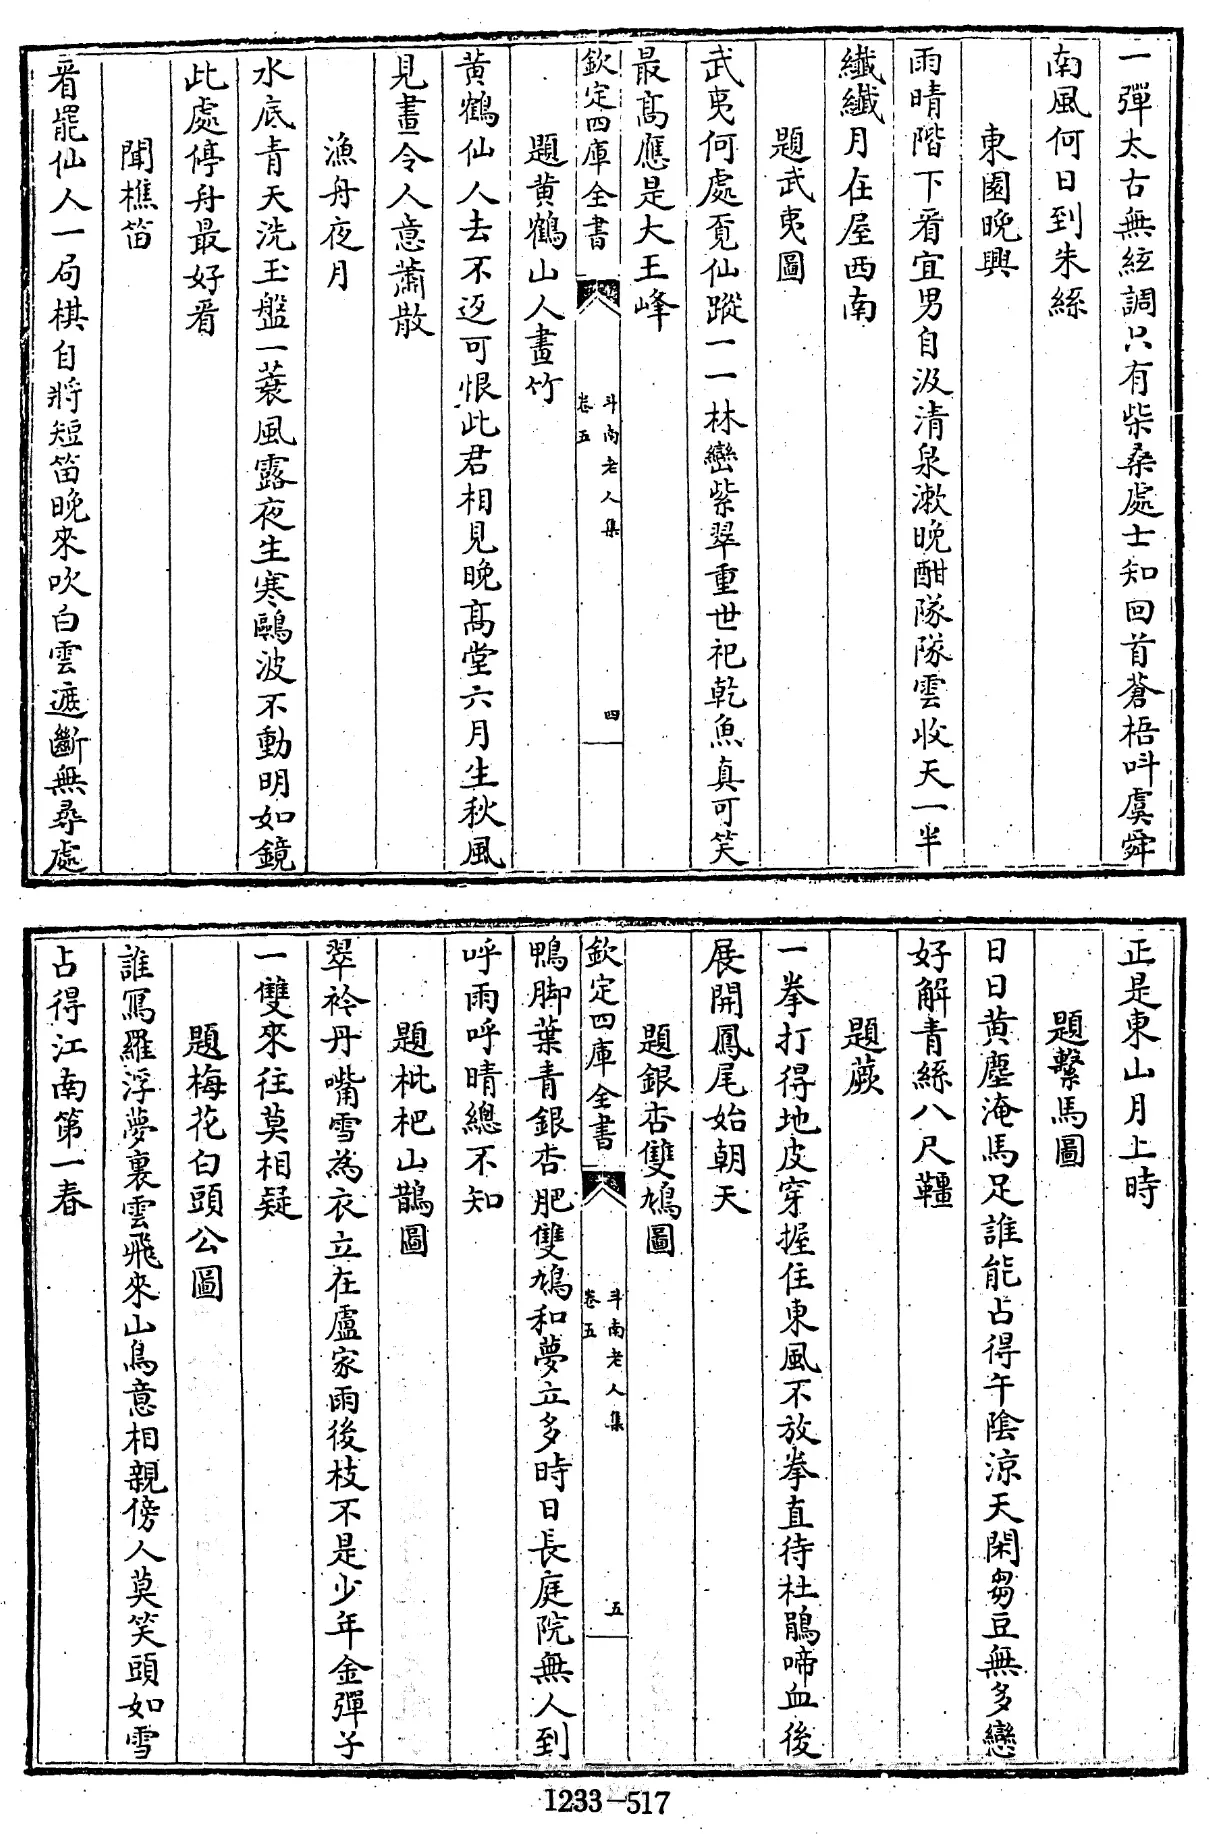 一彈太古無絃調只有柴桑處士知回首蒼梧叫虞舜
南風何日到朱絲
東園晚興
雨晴階下看宜男自汲清泉漱晚酣隊隊雲收天一半
纖纖月在屋西南
題武夷圖
武夷何處覓仙蹤一一林巒紫翠重世祀乾魚真可笑
最高應是大王峰
欽定四庫全書
斗南老人集
卷五
四
題黄鶴山人畫竹
黄鶴仙人去不返可恨此君相見晚髙堂六月生秋風
見畫令人意蕭散
漁舟夜月
水底青天洗玉盤一蓑風露夜生寒鷗波不動明如鏡
此處停舟最好看
聞樵笛
看罷仙人一局棋自將短笛晚來吹白雲遮斷無尋處
正是東山月上時
題繫馬圖
日日黄塵淹馬足誰能占得午陰涼天閑芻豆無多戀
好解青絲八尺韁
題蕨
一拳打得地皮穿握住東風不放拳直待杜鵑啼血後
展開鳳尾始朝天
題銀杏雙鳩圖
欽定四庫全書
斗南老人集
卷五
五
鴨脚葉青銀杏肥雙鳩和夢立多時日長庭院無人到
呼雨呼晴總不知
題枇杷山鵲圖
翠衿丹嘴雪為衣立在盧家雨後枝不是少年金彈子
一雙來往莫相疑
題梅花白頭公圖
誰寫羅浮夢裏雲飛來山鳥意相親傍人莫笑頭如雪
占得江南第一春
1233-517